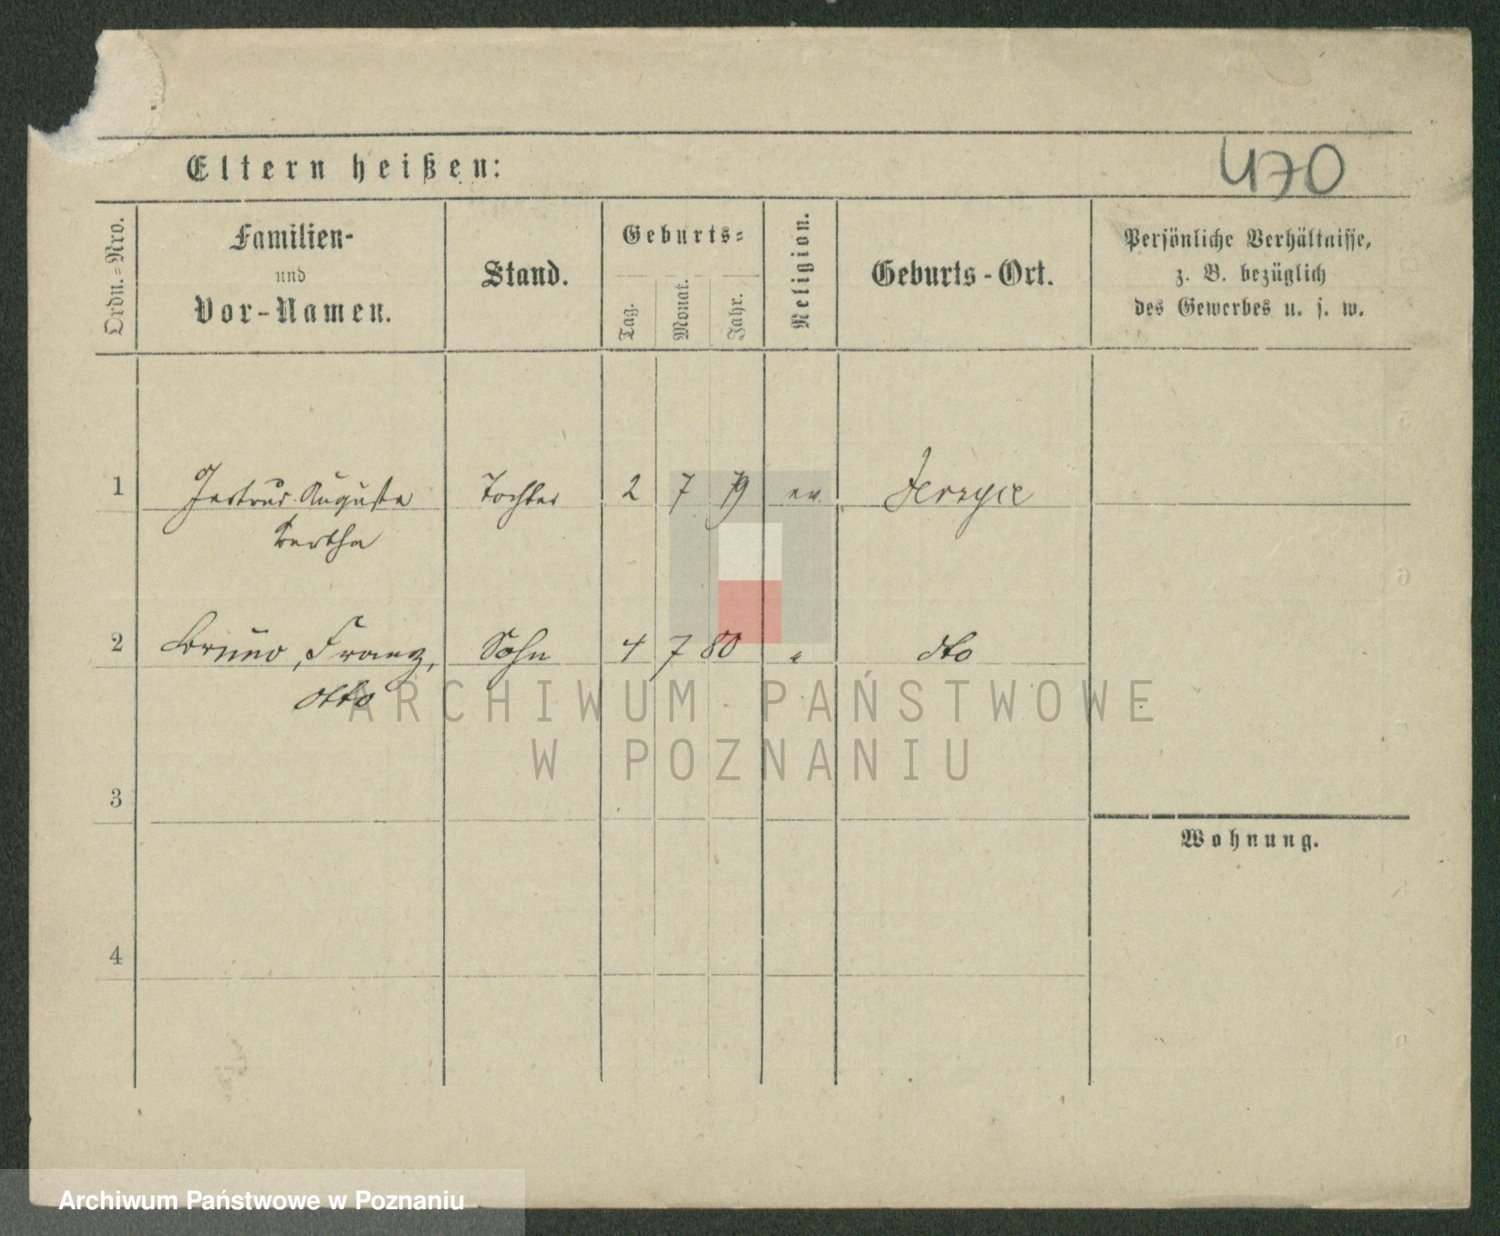 470
Eltern heißen:
Ordn.-Nro.
Familien-
und
Vor-Namen.
Stand.
Geburts-
Tag.
Monat.
Jahr.
Religion.
Geburts-Ort.
Persönliche Verhältnisse,
z. B. bezüglich
des Gewerbes u. s. w.
1 Gertrud Auguste Tochter 2 7 79 ev. Jerzyce
Bertha
2 Bruno, Franz, Sohn 4 7 80 " dto
Otto
ARCHIWUM PAŃSTWOWE
W POZNANIU
3
Wohnung.
4
Archiwum Państwowe w Poznaniu